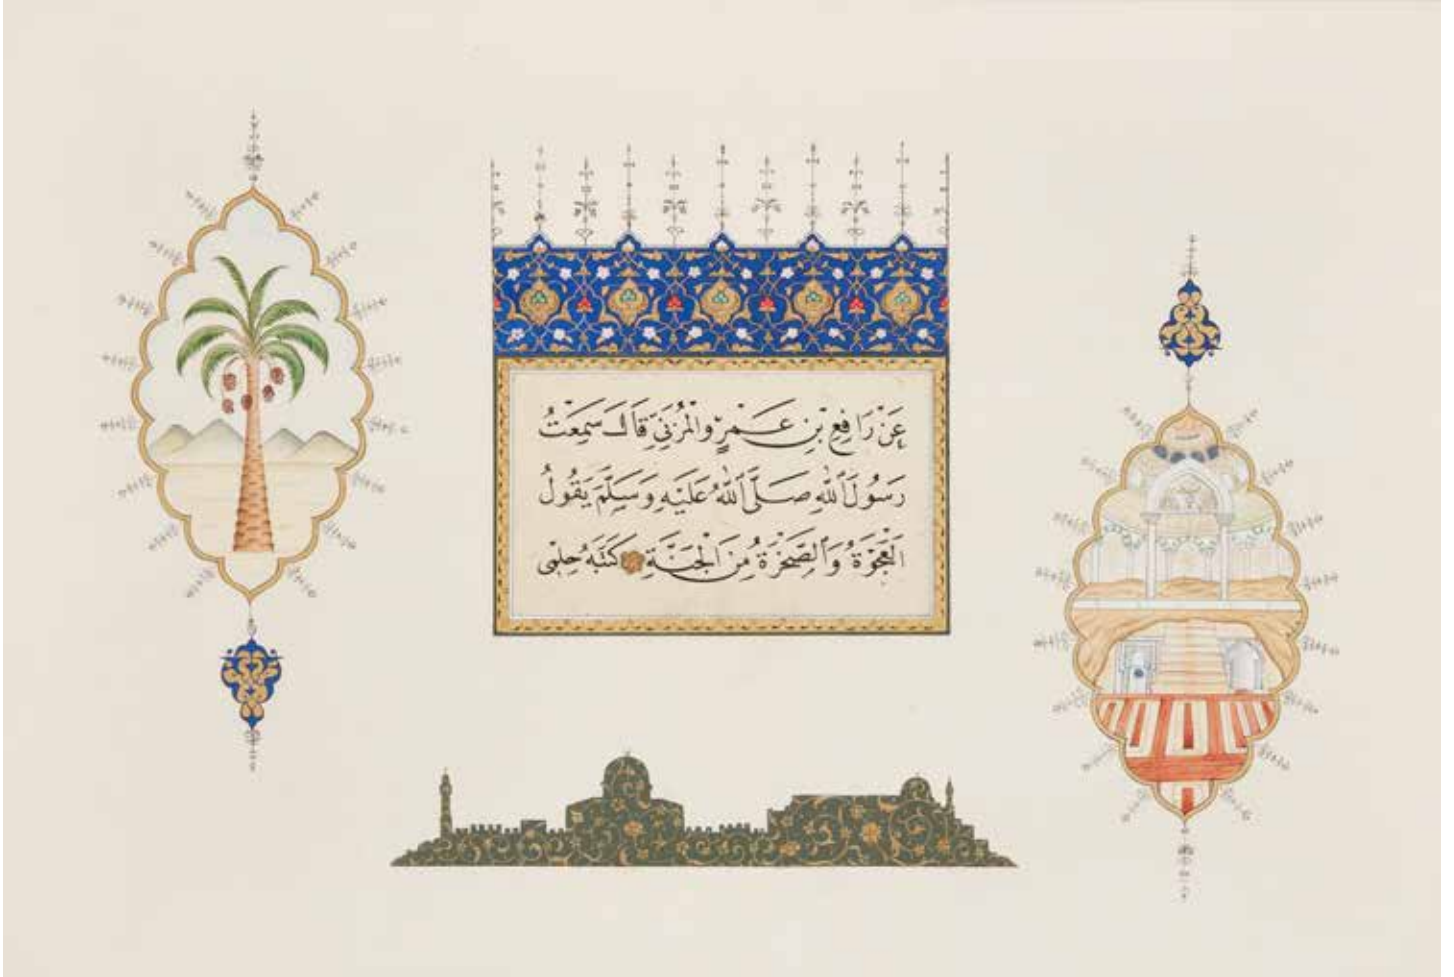 عَنْ رَافِعِ بْنِ عَمْرٍو الْمُزَنِيِّ قَالَ سَمِعْتُ
رَسُولَ ٱللّٰهِ صَلَّى ٱللّٰهُ عَلَيْهِ وَسَلَّمَ يَقُولُ
الْعَجْوَةُ وَالصَّخْرَةُ مِنَ الْجَنَّةِ كَتَبَهُ حِلْمِي